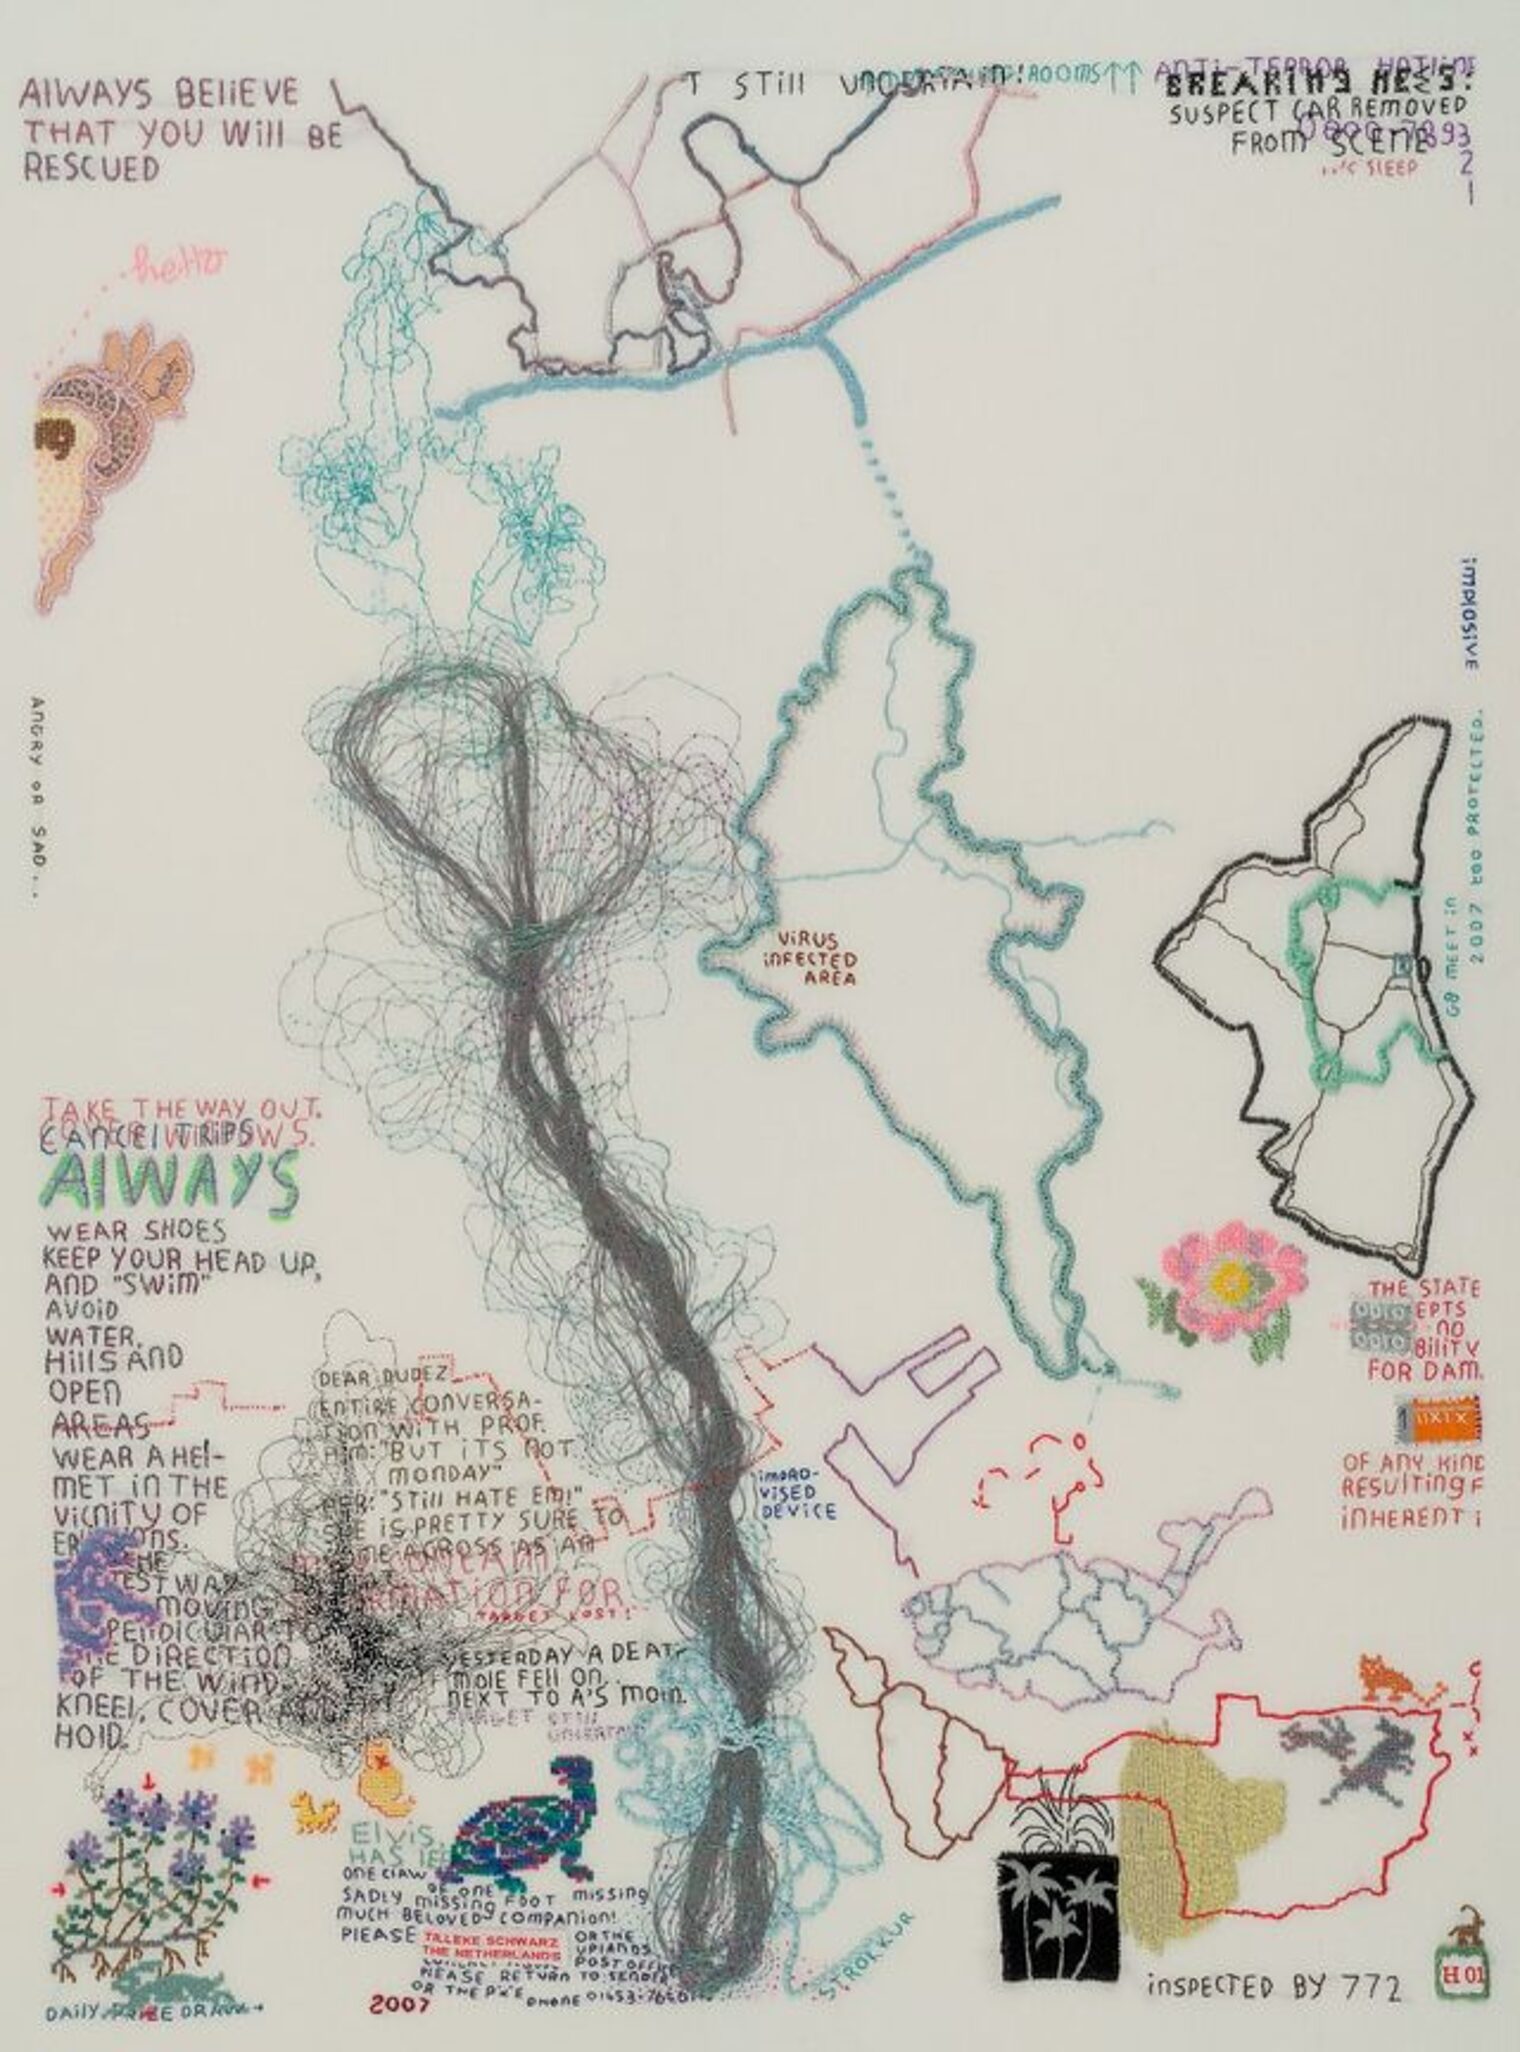 ALWAYS BELIEVE
THAT YOU WILL BE
RESCUED
T STILL UNCERTAIN! ROOMS
ANTI-TERROR HOTLINE
BREAKING NEWS:
SUSPECT CAR REMOVED
FROM SCENE
SLEEP
0800 7893
2
1
ANGRY OR SAD...
IMPLOSIVE
G8 MEET IN
2007 too PROTECTED.
VIRUS
INFECTED
AREA
TAKE THE WAY OUT.
CANCEL TRIPS
ALWAYS
WEAR SHOES
KEEP YOUR HEAD UP,
AND "SWIM"
AVOID
WATER,
HILLS AND
OPEN
AREAS
WEAR A HEL-
MET IN THE
VICNITY OF
MOVING
PENDICULAR TO
THE DIRECTION
OF THE WIND.
KNEEL, COVER AND
HOLD.
DEAR DUDEZ
ENTIRE CONVERSA-
TION WITH PROF.
HIM: "BUT ITS NOT
MONDAY"
HER: "STILL HATE EM!"
SHE IS PRETTY SURE TO
COME ACROSS AS AN
FOR
TARGET LOST!
YESTERDAY A DEAT
MOLE FELL ON..
NEXT TO A'S MOM.
TARGET STILL
UNCERTAIN
IMPRO-
VISED
DEVICE
THE STATE
EPTS
NO
BILITY
FOR DAM.
OF ANY KIND
RESULTING F
INHERENT I
ELVIS
HAS
ONE CLAW
OF ONE
SADLY MISSING FOOT MISSING
MUCH BELOVED COMPANION!
PLEASE
TILLEKE SCHWARZ
THE NETHERLANDS
OR THE
UPLANDS
POST OFFICE
PLEASE RETURN TO SENDER
OR THE
PHONE
2007
DAILY PRIZE DRAW
STROKKUR
INSPECTED BY 772
H 01